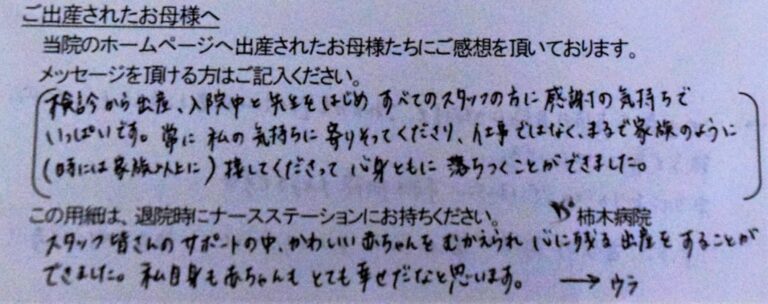 ご出産されたお母様へ
当院のホームページへ出産されたお母様たちにご感想を頂いております。
メッセージを頂ける方はご記入ください。
検診から出産、入院中と先生をはじめ すべてのスタッフの方に感謝の気持ちで
いっぱいです。常に私の気持ちに寄りそってくださり、仕事ではなく、まるで家族のように
(時には家族以上に)接してくださって心身ともに落ちつくことができました。
この用細は、退院時にナースステーションにお持ちください。 柿木病院
スタッフ皆さんのサポートの中、かわいい赤ちゃんをむかえられ 心に残る出産をすることが
できました。私自身も赤ちゃんも とても幸せだなと思います。 → ウラ